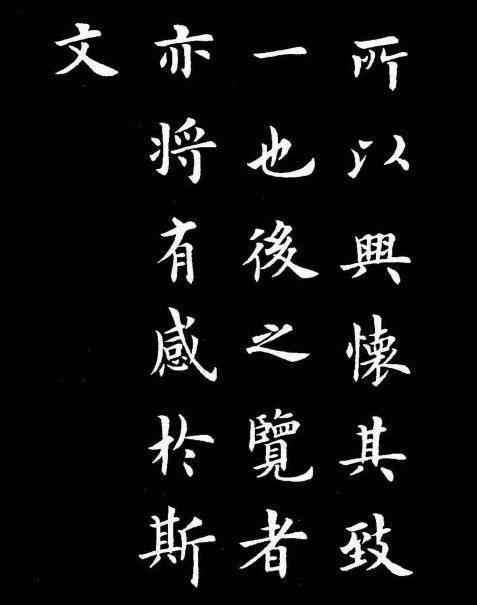 所以興懷其致
一也後之覽者
亦将有感於斯
文